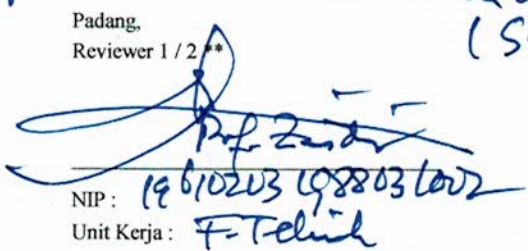 (S
Padang,
Reviewer 1 / 2 **
Prof. Zaidir
NIP : 196102131988031002
Unit Kerja : F. Teknik